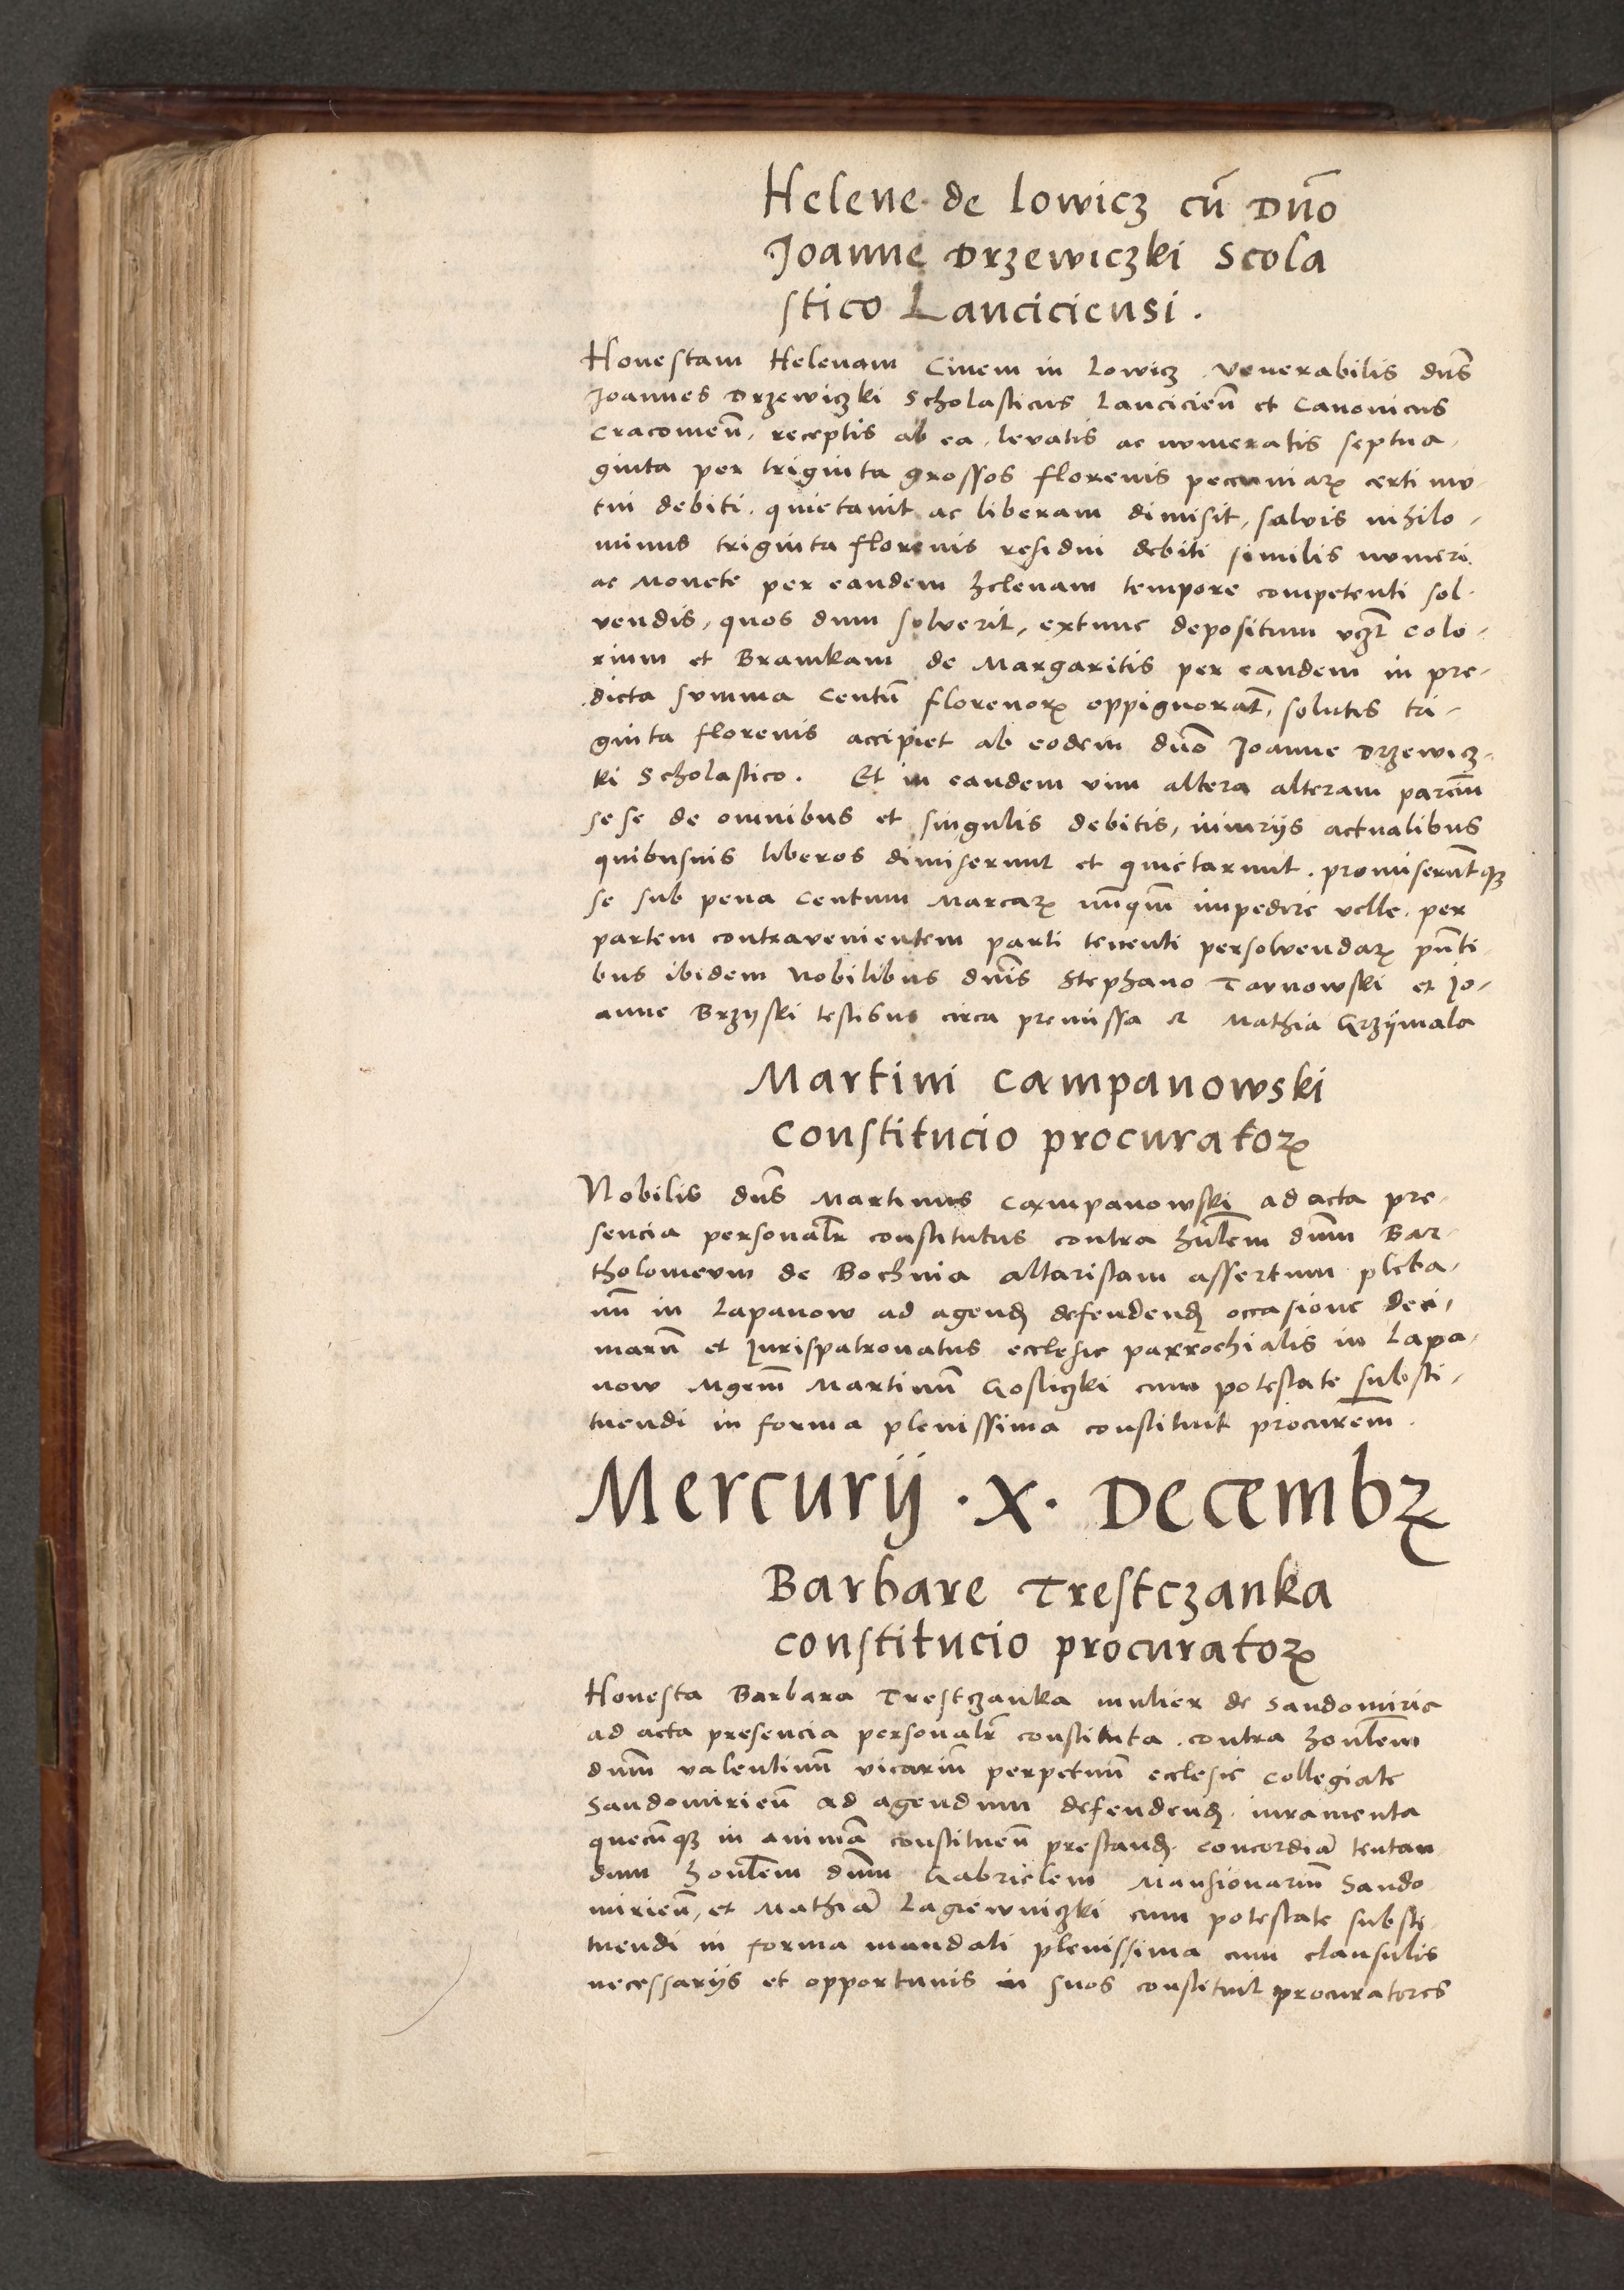 Helene de Lowicz cū Dño
Joanne Drzewiczki Scola
stico Lanciciensi.
Honestam Helenam Civem in Lowicz venerabilis dñs
Joannes Drzewiczki Scholasticus Lanciciēn et Canonicus
Cracovieñ, receptis ab ea, levatis ac numeratis septua-
ginta per triginta grossos florenis pecuniarꝝ certi mu-
tui debiti, quietavit ac liberam dimisit, salvis nihilo-
minus triginta florenis residui debiti similis numeri
ac Monete per eandem helenam tempore competenti sol-
vendis, quos dum solverit, extunc depositum vczt colo-
rium et Bramkam de Margaritis per eandem in pre-
dicta summa Centū florenorꝝ oppignorat̄, solutis tri-
ginta florenis accipiet ab eodem dño Joanne Drzewicz-
ki Scholastico. Et in eandem vim altera alteram parciū
sese de omnibus et singulis debitis, iniurijs actualibus
quibusuis liberos dimiserunt et quietarunt. promiserūtqꝫ
se sub pena Centum Marcarꝝ nūqm̄ impedire velle, per
partem contravenientem parti tenenti persolvendarꝝ pn̄ti-
bus ibidem Nobilibus dnīs Stephano Tarnowski et Jo-
anne Brzyski testibus circa premissa et Mathia Grzymala
Martini Campanowski
Constitucio procuratorꝝ
Nobilis dñs Martinus Campanowski ad acta pre-
sencia personalr̄ constitutus contra hnl̄em dnm̄ Bar-
tholomeum de Bochnia altaristam assertum pleba-
nū in Lapanow ad agendꝫ defendendꝫ occasione deci-
marū et Jurispatronatus ecclesie parrochialis in Lapa-
now Mgrm̄ Martinū Gosliczki cum potestate substi-
tuendi in forma plenissima constituit procurem̄.
Mercurij .X. Decembrꝫ
Barbare Trestczanka
constitucio procuratorꝝ
Honesta Barbara Trestczanka mulier de Sandomirie
ad acta presencia personalr̄ constituta. contra honl̄em
dnm̄ Valentinū vicariū perpetuū ecclesie Collegiate
Sandomirieñ ad agendum defendendꝫ. iuramenta
quecūqꝫ in animā constitueñ prestandꝫ. concordiā tentan
dum honl̄em dnm̄ Gabrielem Mansionariū Sando
mirieñ, et Mathiā Lagiewniczki cum potestate substi
tuendi in forma mandati plenissima cum clausulis
necessarijs et opportunis in suos constituit procuratores